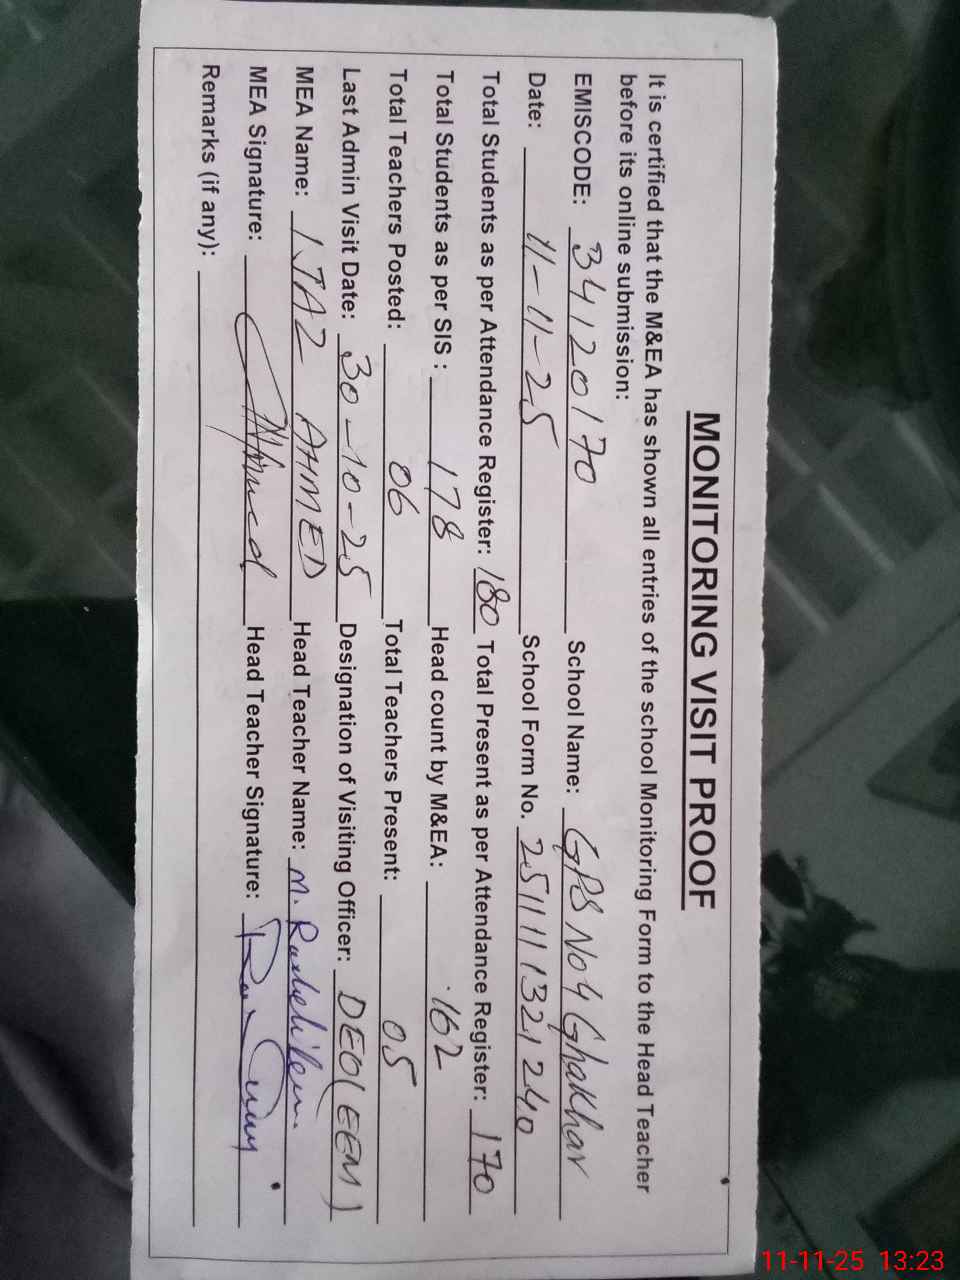 MONITORING VISIT PROOF
It is certified that the M&EA has shown all entries of the school Monitoring Form to the Head Teacher
before its online submission:
EMISCODE: 34120170 School Name: GPS No 4 Ghakhar
Date: 11-11-25 School Form No. 2511111321240
Total Students as per Attendance Register: 180 Total Present as per Attendance Register: 170
Total Students as per SIS : 178 Head count by M&EA: 162
Total Teachers Posted: 06 Total Teachers Present: 05
Last Admin Visit Date: 30-10-25 Designation of Visiting Officer: DEO(EEM)
MEA Name: IJAZ AHMED Head Teacher Name: M.
MEA Signature: Head Teacher Signature:
Remarks (if any):
11-11-25 13:23